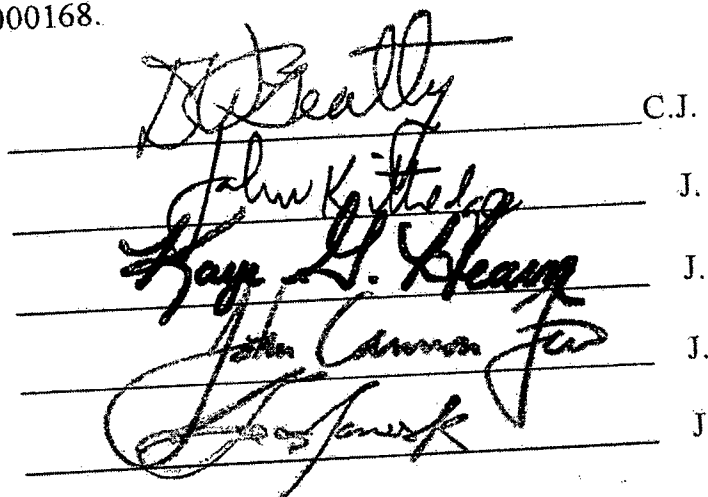 000168.
D W Beatty C.J.
John Kittredge J.
Kaye G. Hearn J.
John Cannon Few J.
J